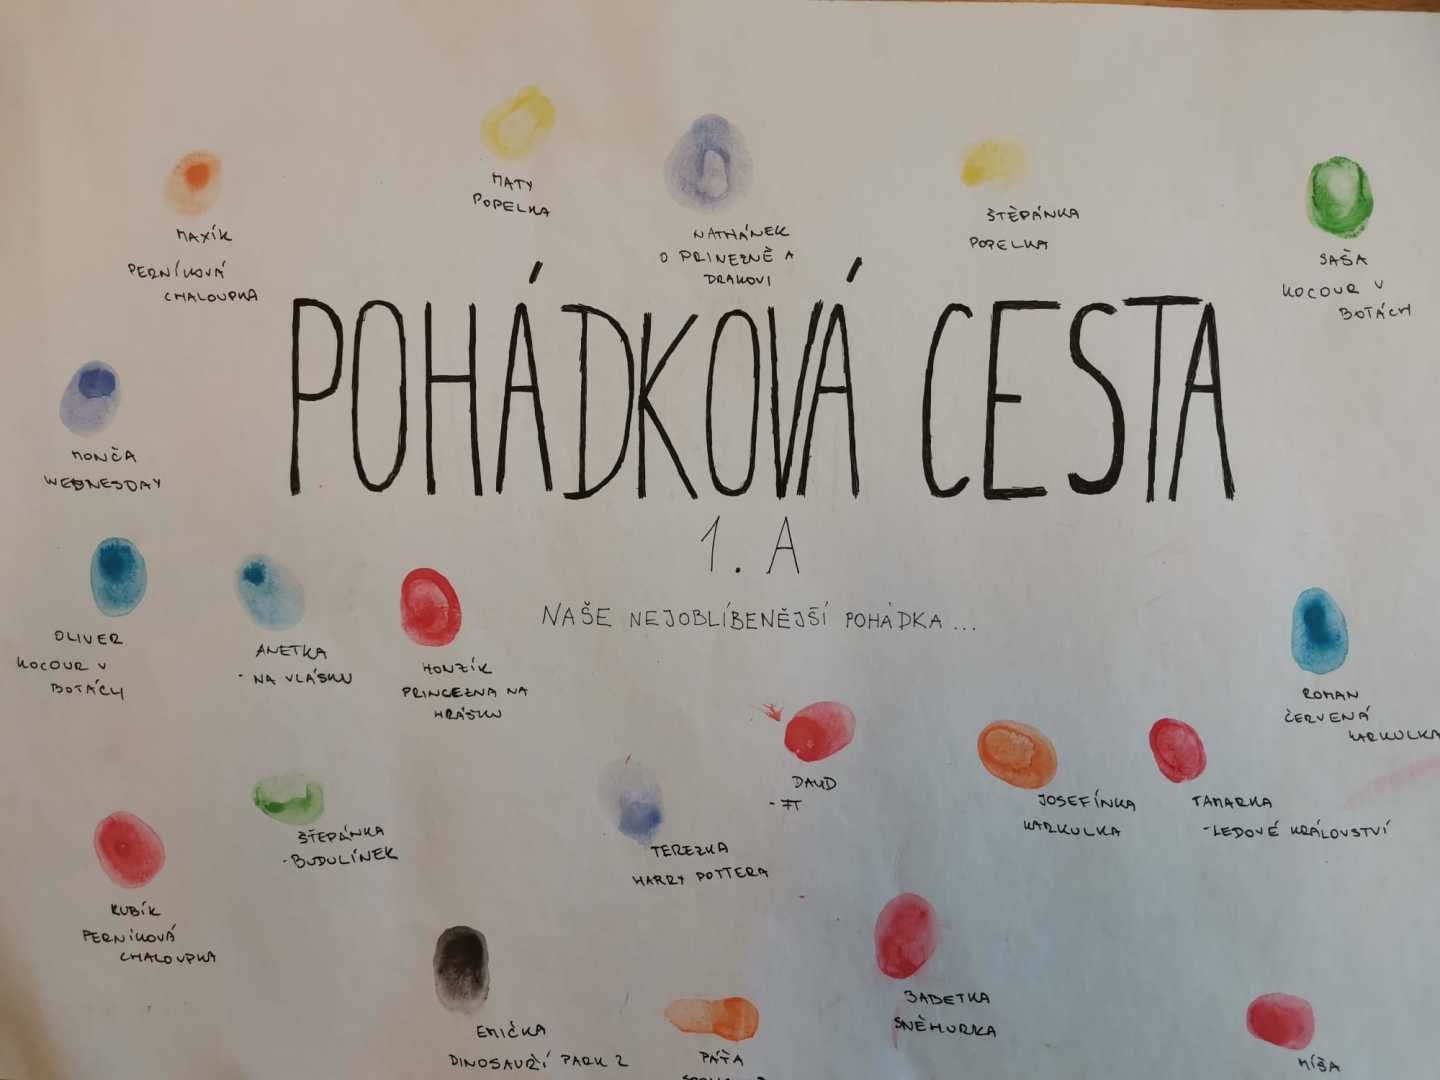 MAXÍK
PERNÍKOVÁ
CHALOUPKA
MATY
POPELKA
NATHÁNEK
O PRINEZNĚ A
DRAKOVI
ŠTĚPÁNKA
POPELKA
SAŠA
KOCOUR V
BOTÁCH
POHÁDKOVÁ CESTA
1. A
NAŠE NEJOBLÍBENĚJŠÍ POHÁDKA...
MONČA
WEDNESDAY
OLIVER
KOCOUR V
BOTÁCH
ANETKA
- NA VLÁSKU
HONZÍK
PRINCEZNA NA
HRÁSKU
ROMAN
ČERVENÁ
KARKULKA
DAVID
JOSEFÍNKA
KARKULKA
TAMARKA
-LEDOVÉ KRÁLOVSTVÍ
ŠTEPÁNKA
-BUDULÍNEK
TEREZKA
HARRY POTTERA
KUBÍK
PERNÍKOVÁ
CHALOUPKA
EMIČKA
DINOSAUŘÍ PARK 2
PÁŤA
BABETKA
SNĚHURKA
MÍŠA